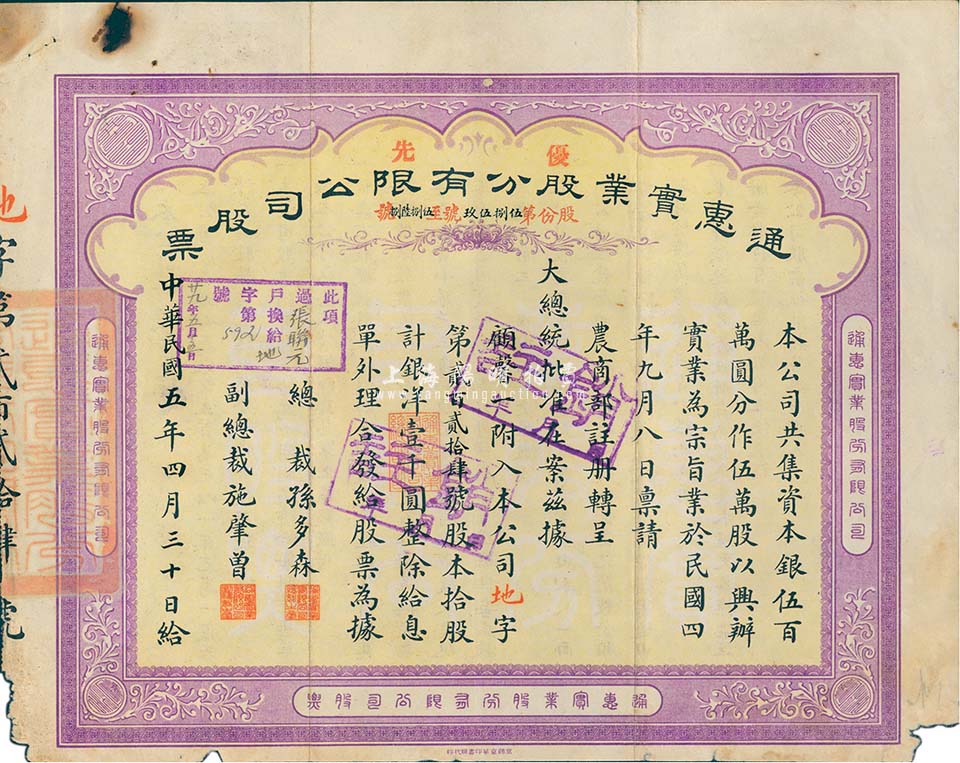 優先
通惠實業股分有限公司股票
股份第伍捌伍玖號至伍捌陸捌號
本公司共集資本銀伍百
萬圓分作伍萬股以興辦
實業為宗旨業於民國四
年九月八日稟請
農商部註册轉呈
大總統批准在案茲據
顧馨一附入本公司地字
第貳百貳拾肆號股本拾股
計銀洋壹千圓整除給息
單外理合發給股票為據
總裁孫多森
副總裁施肇曾
中華民國五年四月三十日給
此項
過張聯元
戶換給
字第5921
地
號
廿九年五月
地字第貳百貳拾肆號
通惠實業股分有限公司
通惠實業股分有限公司
通惠實業股分有限公司股票
上海陽明拍賣
www.yangmingauction.com